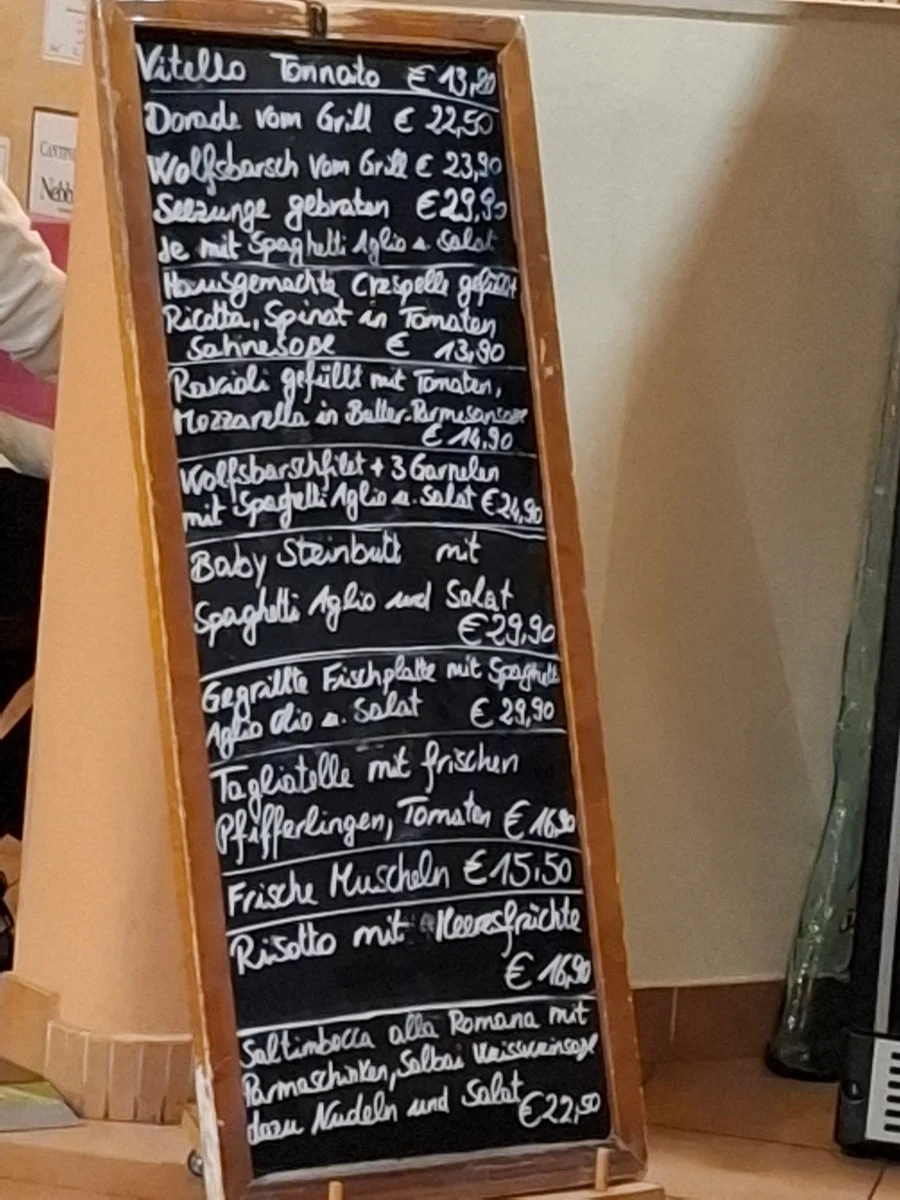 Vitello Tonnato € 13,80
Dorade vom Grill € 22,50
Wolfsbarsch vom Grill € 23,90
Seezunge gebraten € 29,90
Je mit Spaghetti Aglio u. Salat
Hausgemachte Crespelle gefüllt
Ricotta, Spinat in Tomaten
Sahnesoße € 13,90
Ravioli gefüllt mit Tomaten,
Mozzarella in Butter-Parmesansoße
€ 14,90
Wolfsbarschfilet + 3 Garnelen
mit Spaghetti Aglio u. Salat € 24,90
Baby Steinbutt mit
Spaghetti Aglio und Salat
€ 29,90
Gegrillte Fischplatte mit Spaghetti
Aglio Olio u. Salat € 29,90
Tagliatelle mit frischen
Pfifferlingen, Tomaten € 16,90
Frische Muscheln € 15,50
Risotto mit Meeresfrüchte
€ 16,90
Saltimbocca alla Romana mit
Parmaschinken, Salbei Weissweinsoße
dazu Nudeln und Salat € 22,50